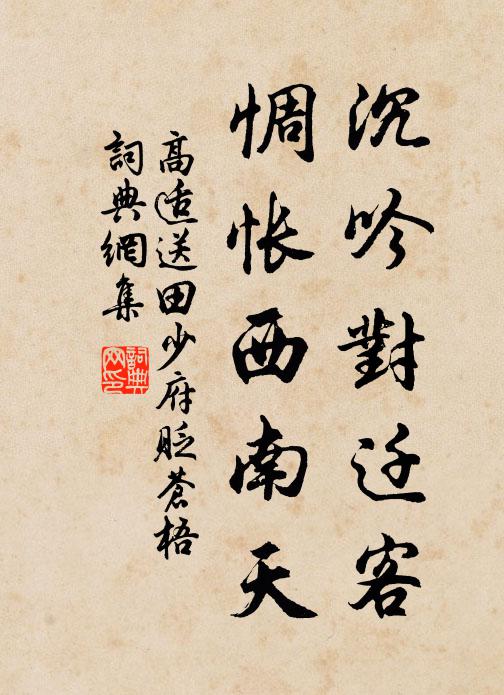 沉吟對迁客
惆怅西南天
高适送田少府貶蒼梧
詞典網集
詞典网印